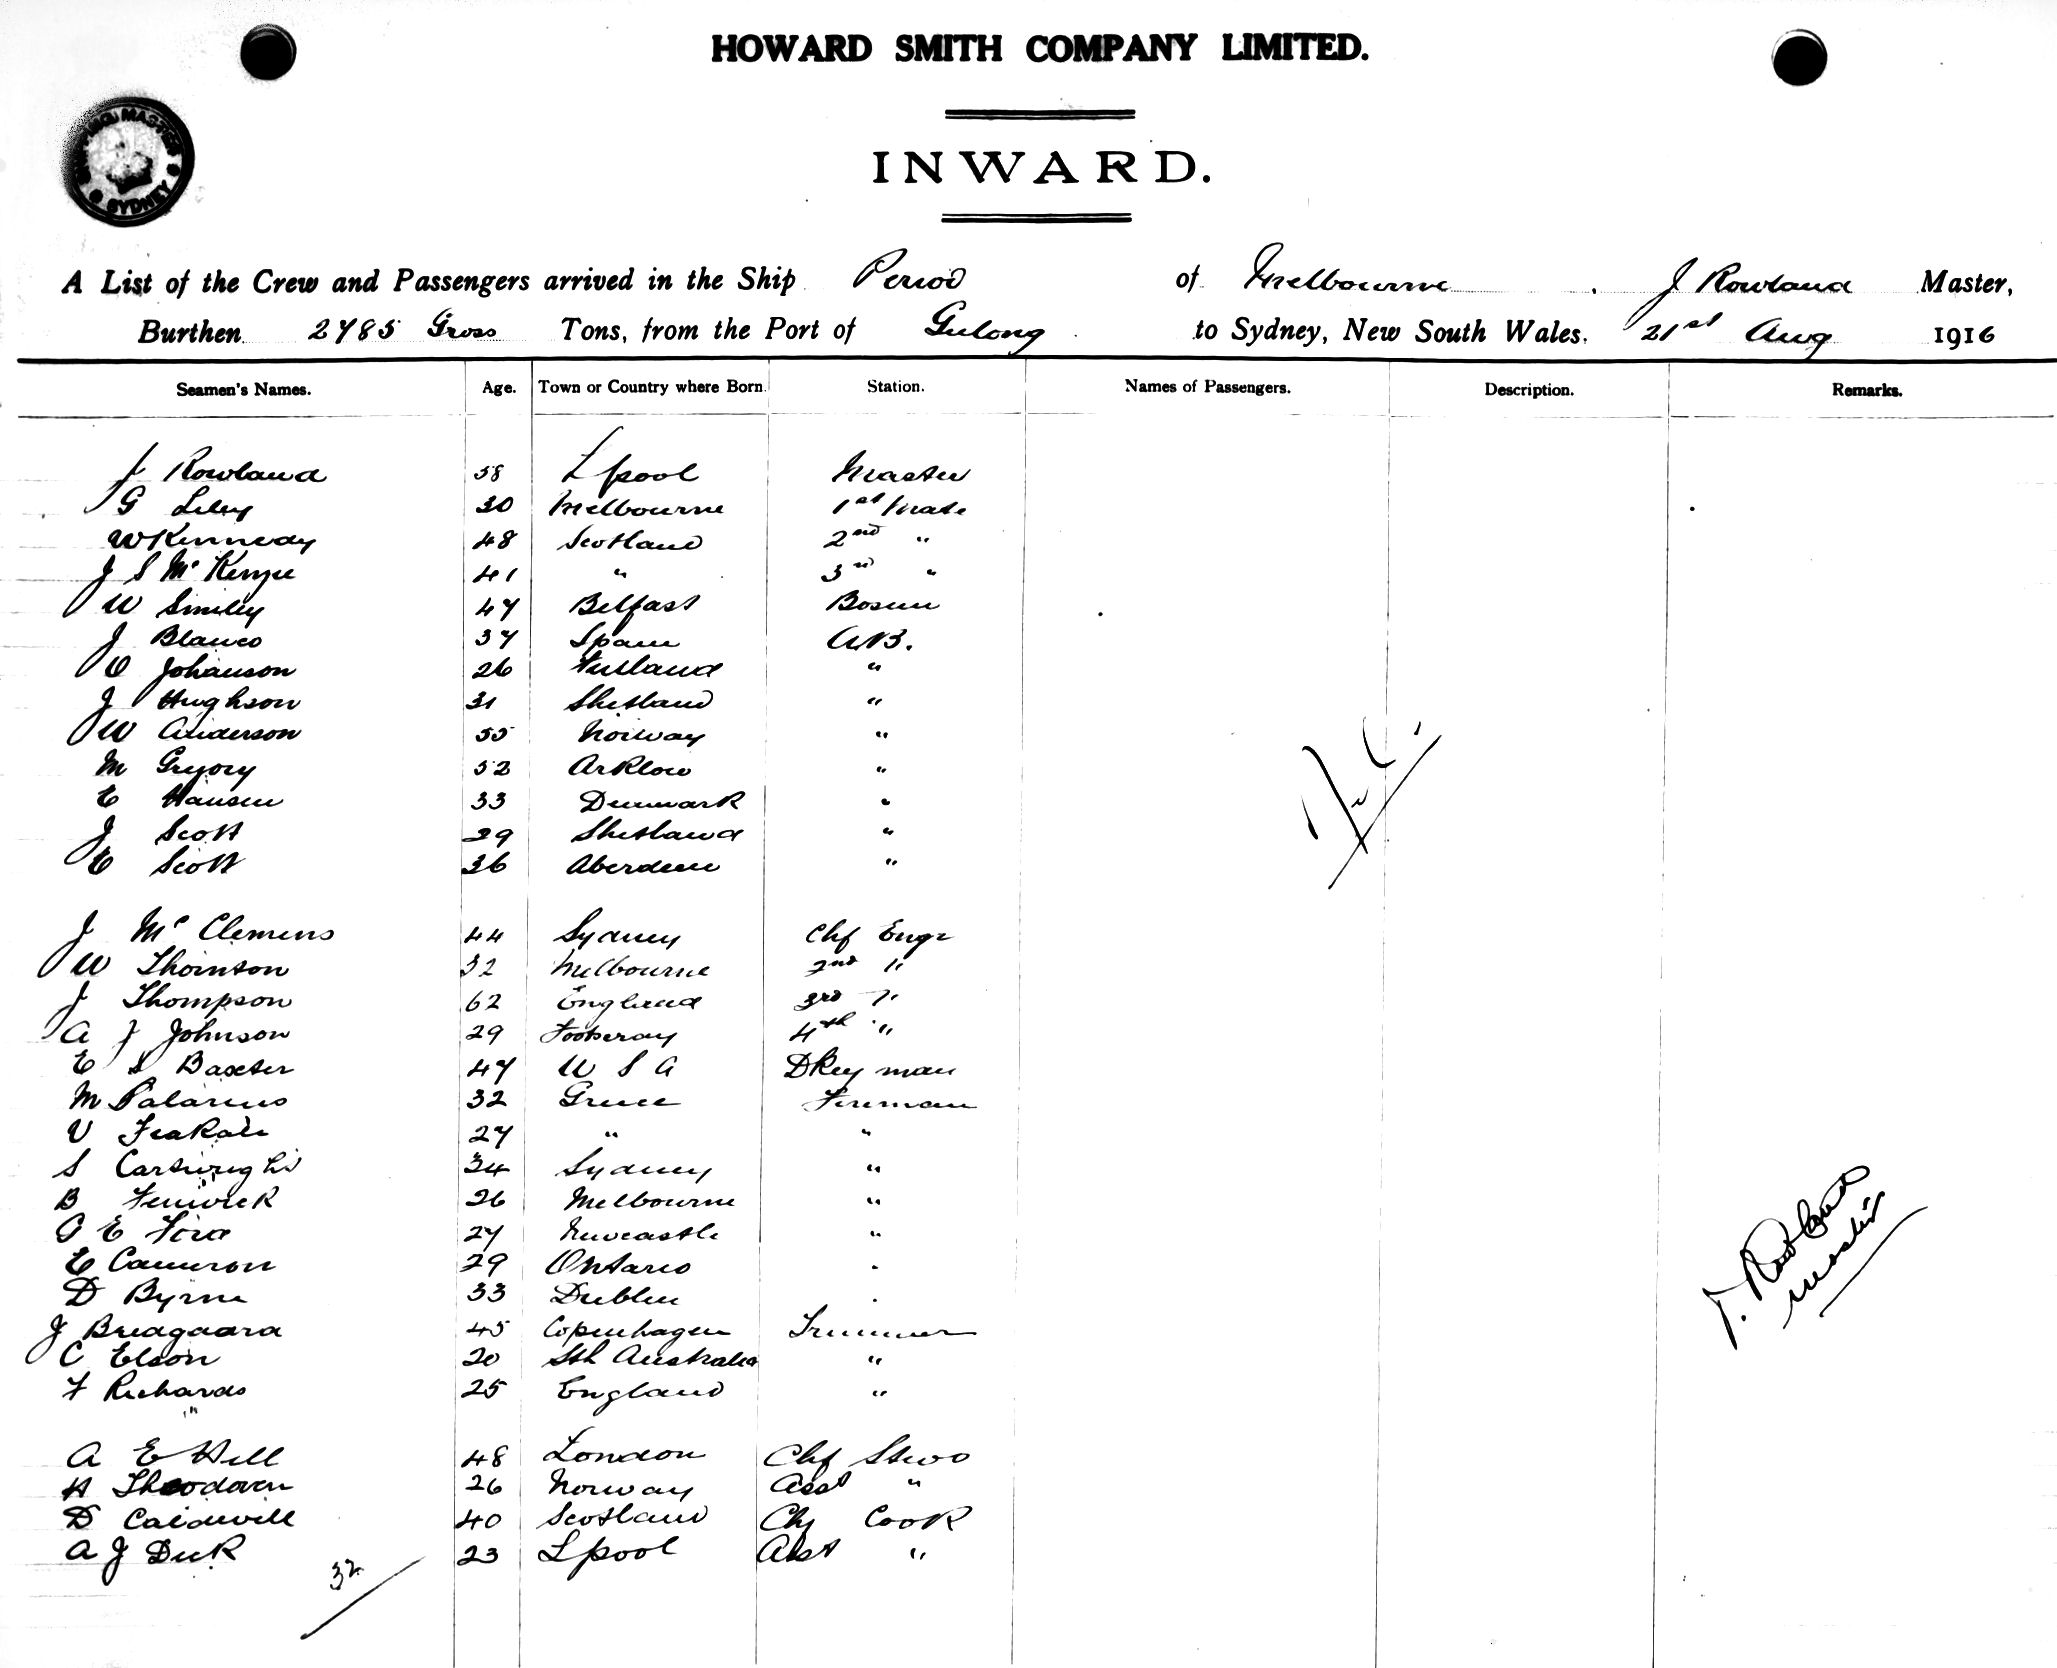 HOWARD SMITH COMPANY LIMITED.
SHIPPING MASTER SYDNEY
INWARD.
A List of the Crew and Passengers arrived in the Ship Period of Melbourne, J Rowland Master,
Burthen 2785 Gross Tons, from the Port of Geelong to Sydney, New South Wales. 21st Aug 1916
Seamen's Names. Age. Town or Country where Born. Station. Names of Passengers. Description. Remarks.
J Rowland 58 Lpool Master
G 30 Melbourne 1st Mate
W Kennedy 48 Scotland 2nd "
J S McKenzie 41 " 3rd "
W Smiley 47 Belfast Bosun
J Blanco 37 Spain A.B.
O Johanson 26 "
J Hughson 31 Shetland "
W Anderson 55 Norway "
M Gregory 52 Arklow "
E Hansen 33 Denmark "
J Scott 29 Shetland "
E Scott 36 Aberdeen "
Nil
J McClemens 44 Sydney Chf Engr
W Thornton 32 Melbourne 2nd "
J Thompson 62 England 3rd "
A J Johnson 29 Footscray 4th "
E S Baxter 47 U S A Dkeyman
M 32 Greece Fireman
V 27 " "
S Cartwright 34 Sydney "
B Fenwick 26 Melbourne "
G E Ford 27 Newcastle "
E Cameron 29 Ontario "
D Byrne 33 Dublin "
J Bredgaard 45 Copenhagen Trimmer
C Elson 20 Sth Australia "
F Richards 25 England "
J. Rowland
Master
A E Hill 48 London Chf Stwd
H 26 Norway Asst "
D Caldwell 40 Scotland Chf Cook
A J Dick 23 Lpool Asst "
32